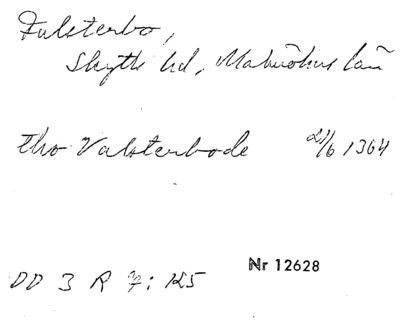 Falsterbo,
Skytts hd, Malmöhus län
tho Valsterbode 21/6 1364
Nr 12628
DD 3 R 7: 125